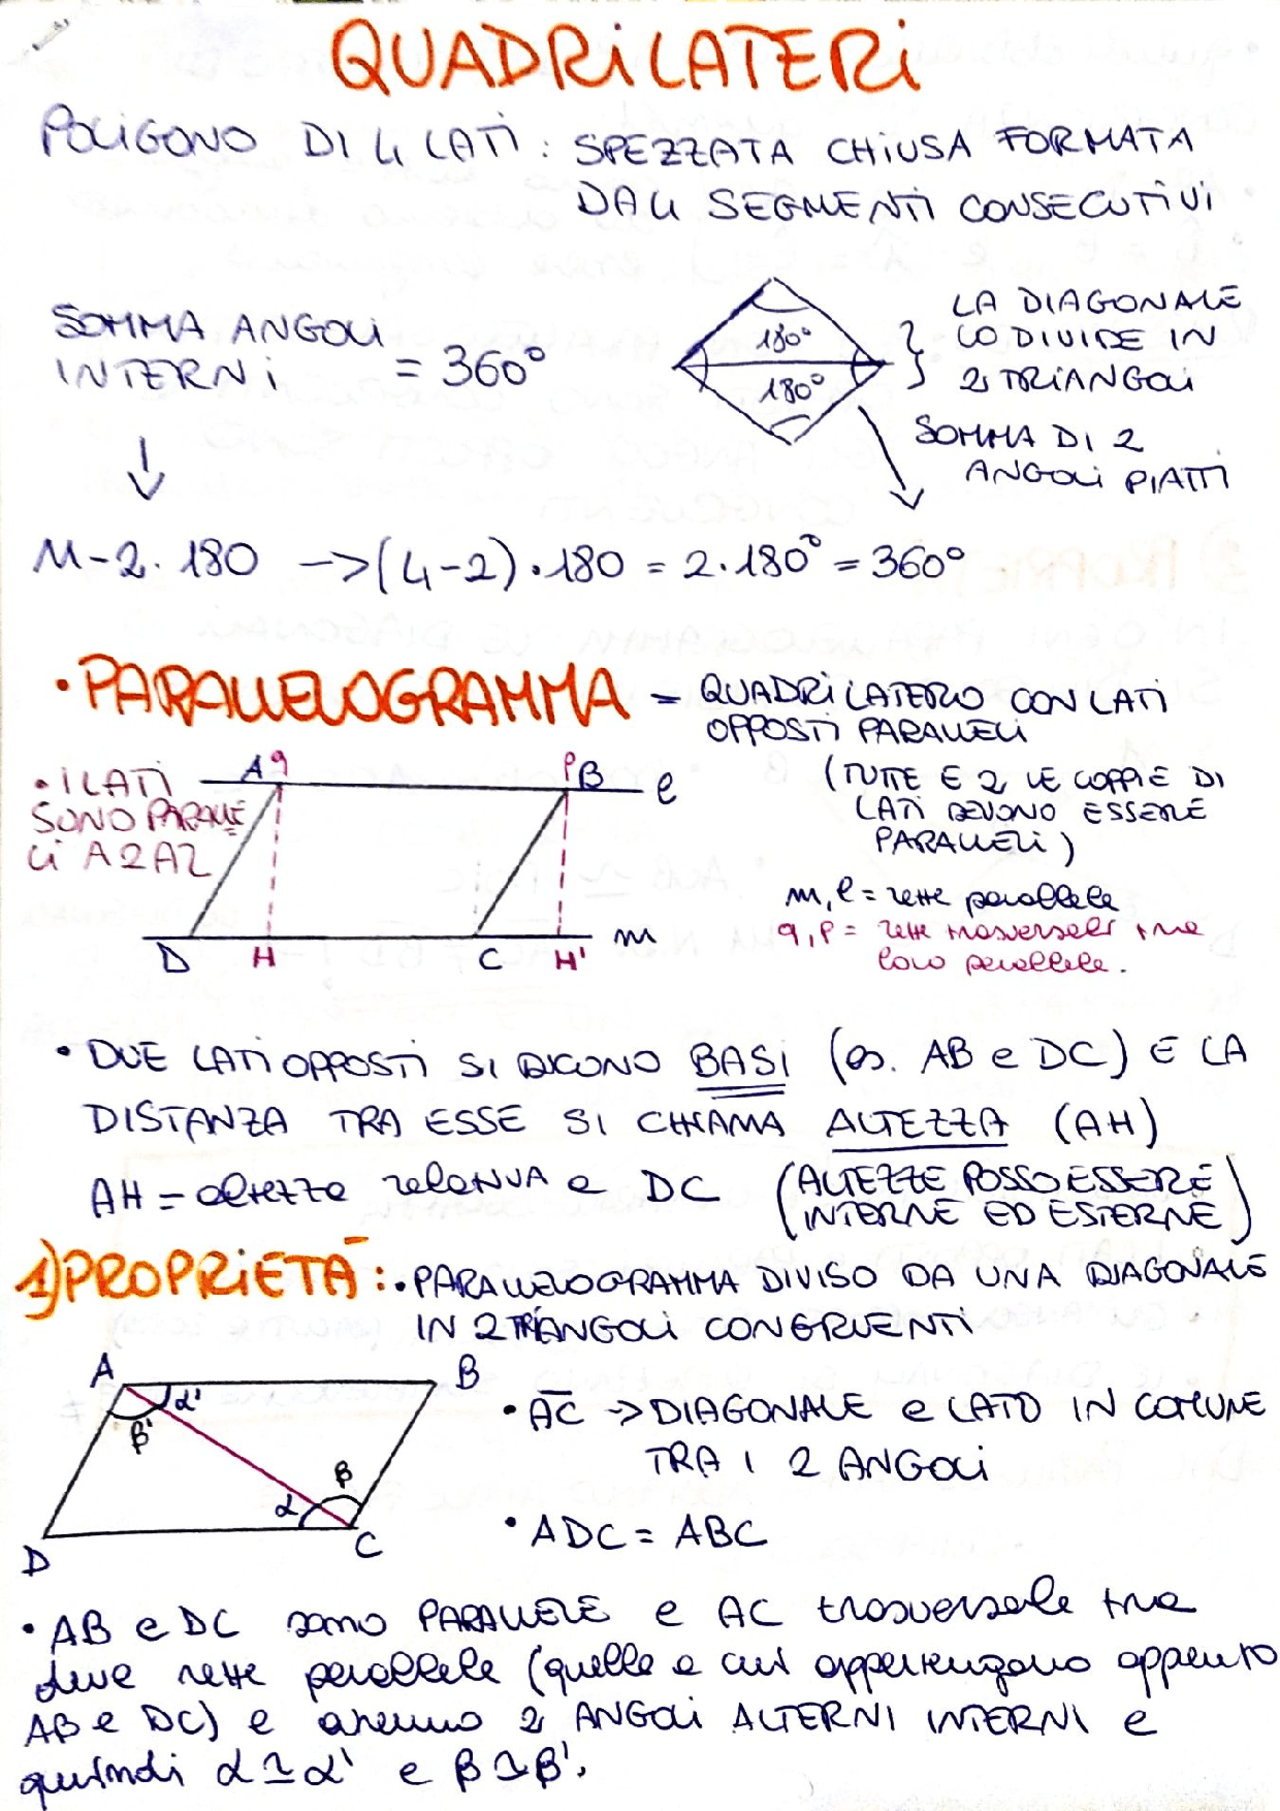 QUADRILATERI
POLIGONO DI 4 LATI : SPEZZATA CHIUSA FORMATA
DA 4 SEGMENTI CONSECUTIVI
SOMMA ANGOLI
INTERNI = 360°
180°
180°
LA DIAGONALE
LO DIVIDE IN
2 TRIANGOLI
SOMMA DI 2
ANGOLI PIATTI
↓
M-2. 180 -> (4-2).180 = 2.180° = 360°
• PARALLELOGRAMMA - QUADRILATERO CON LATI
OPPOSTI PARALLELI
(TUTTE E 2 LE COPPIE DI
LATI DEVONO ESSERE
PARALLELI)
• I LATI
SONO PARALLE
LI A 2 A 2
A q P B l
D H C H' m
m, l = rette parallele
q, p = rette trasversali tra
loro parallele.
• DUE LATI OPPOSTI SI DICONO BASI (es. AB e DC) E LA
DISTANZA TRA ESSE SI CHIAMA ALTEZZA (AH)
AH = altezza relativa a DC (ALTEZZE POSSO ESSERE
INTERNE ED ESTERNE)
1) PROPRIETÀ : • PARALLELOGRAMMA DIVISO DA UNA DIAGONALE
IN 2 TRIANGOLI CONGRUENTI
A B
α'
β'
β
α
D C
• AC → DIAGONALE e LATO IN COMUNE
TRA I 2 ANGOLI
• ADC = ABC
• AB e DC sono PARALLELE e AC trasversale tra
due rette parallele (quelle a cui appartengono appunto
AB e DC) e avremo 2 ANGOLI ALTERNI INTERNI e
quindi α ≅ α' e β ≅ β'.